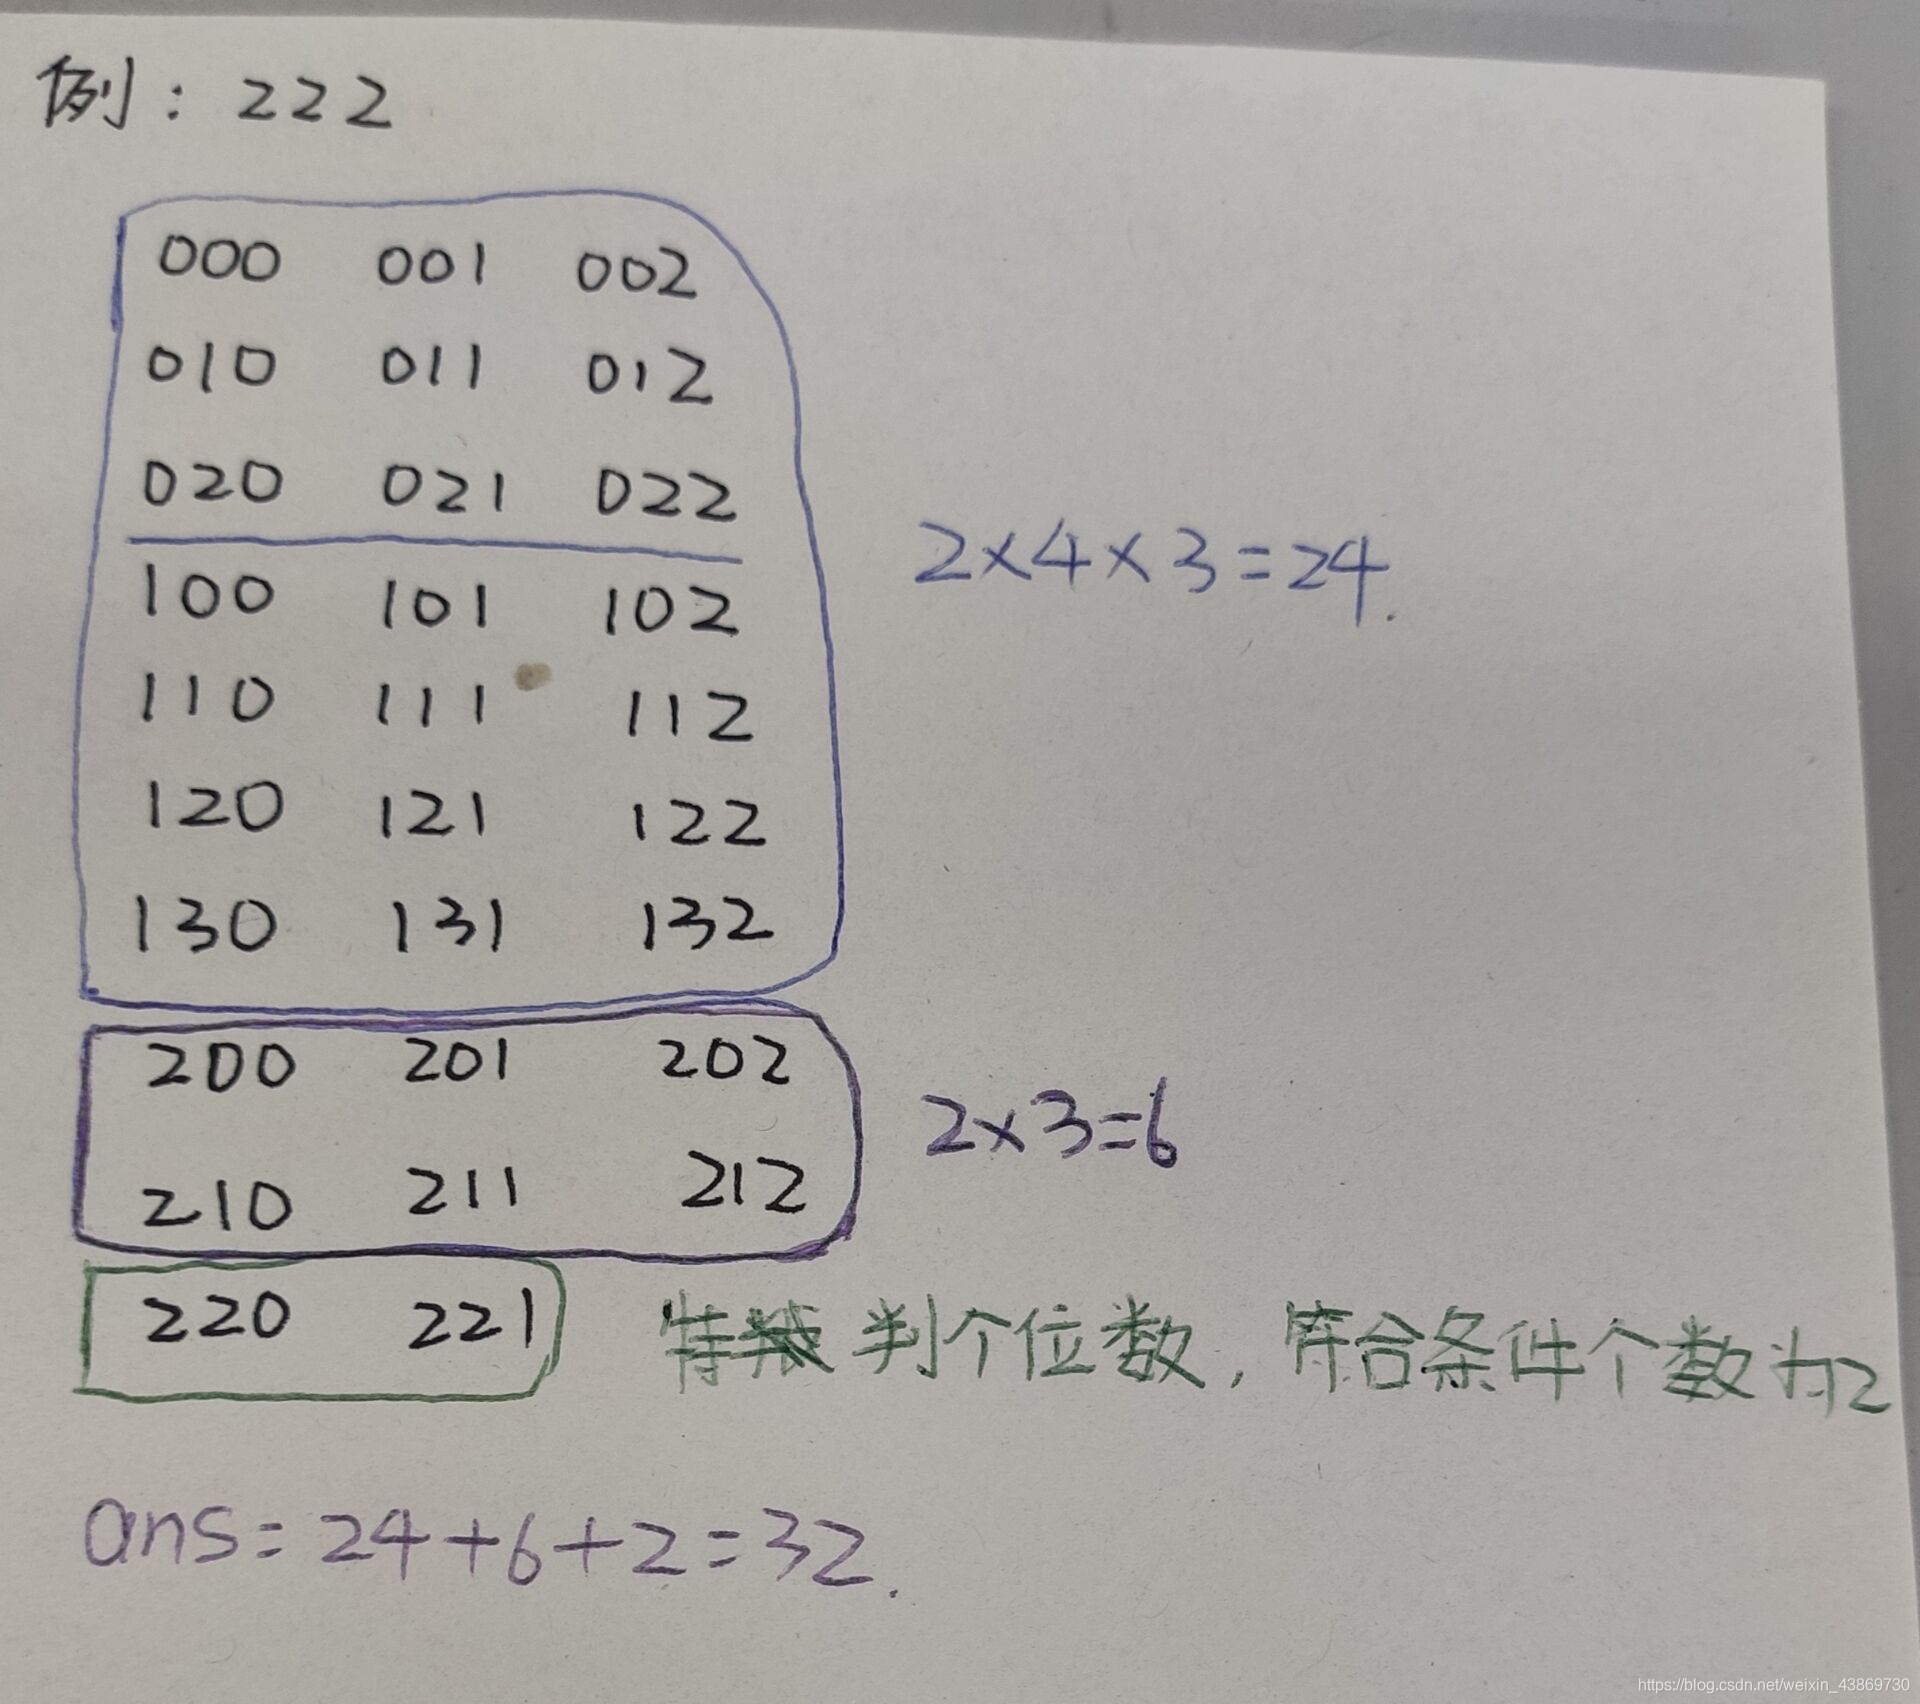 例：222
000 001 002
010 011 012
020 021 022
100 101 102
110 111 112
120 121 122
130 131 132
2×4×3=24.
200 201 202
210 211 212
2×3=6
220 221
特 判个位数，符合条件个数为2
ans=24+6+2=32.
https://blog.csdn.net/weixin_43869730